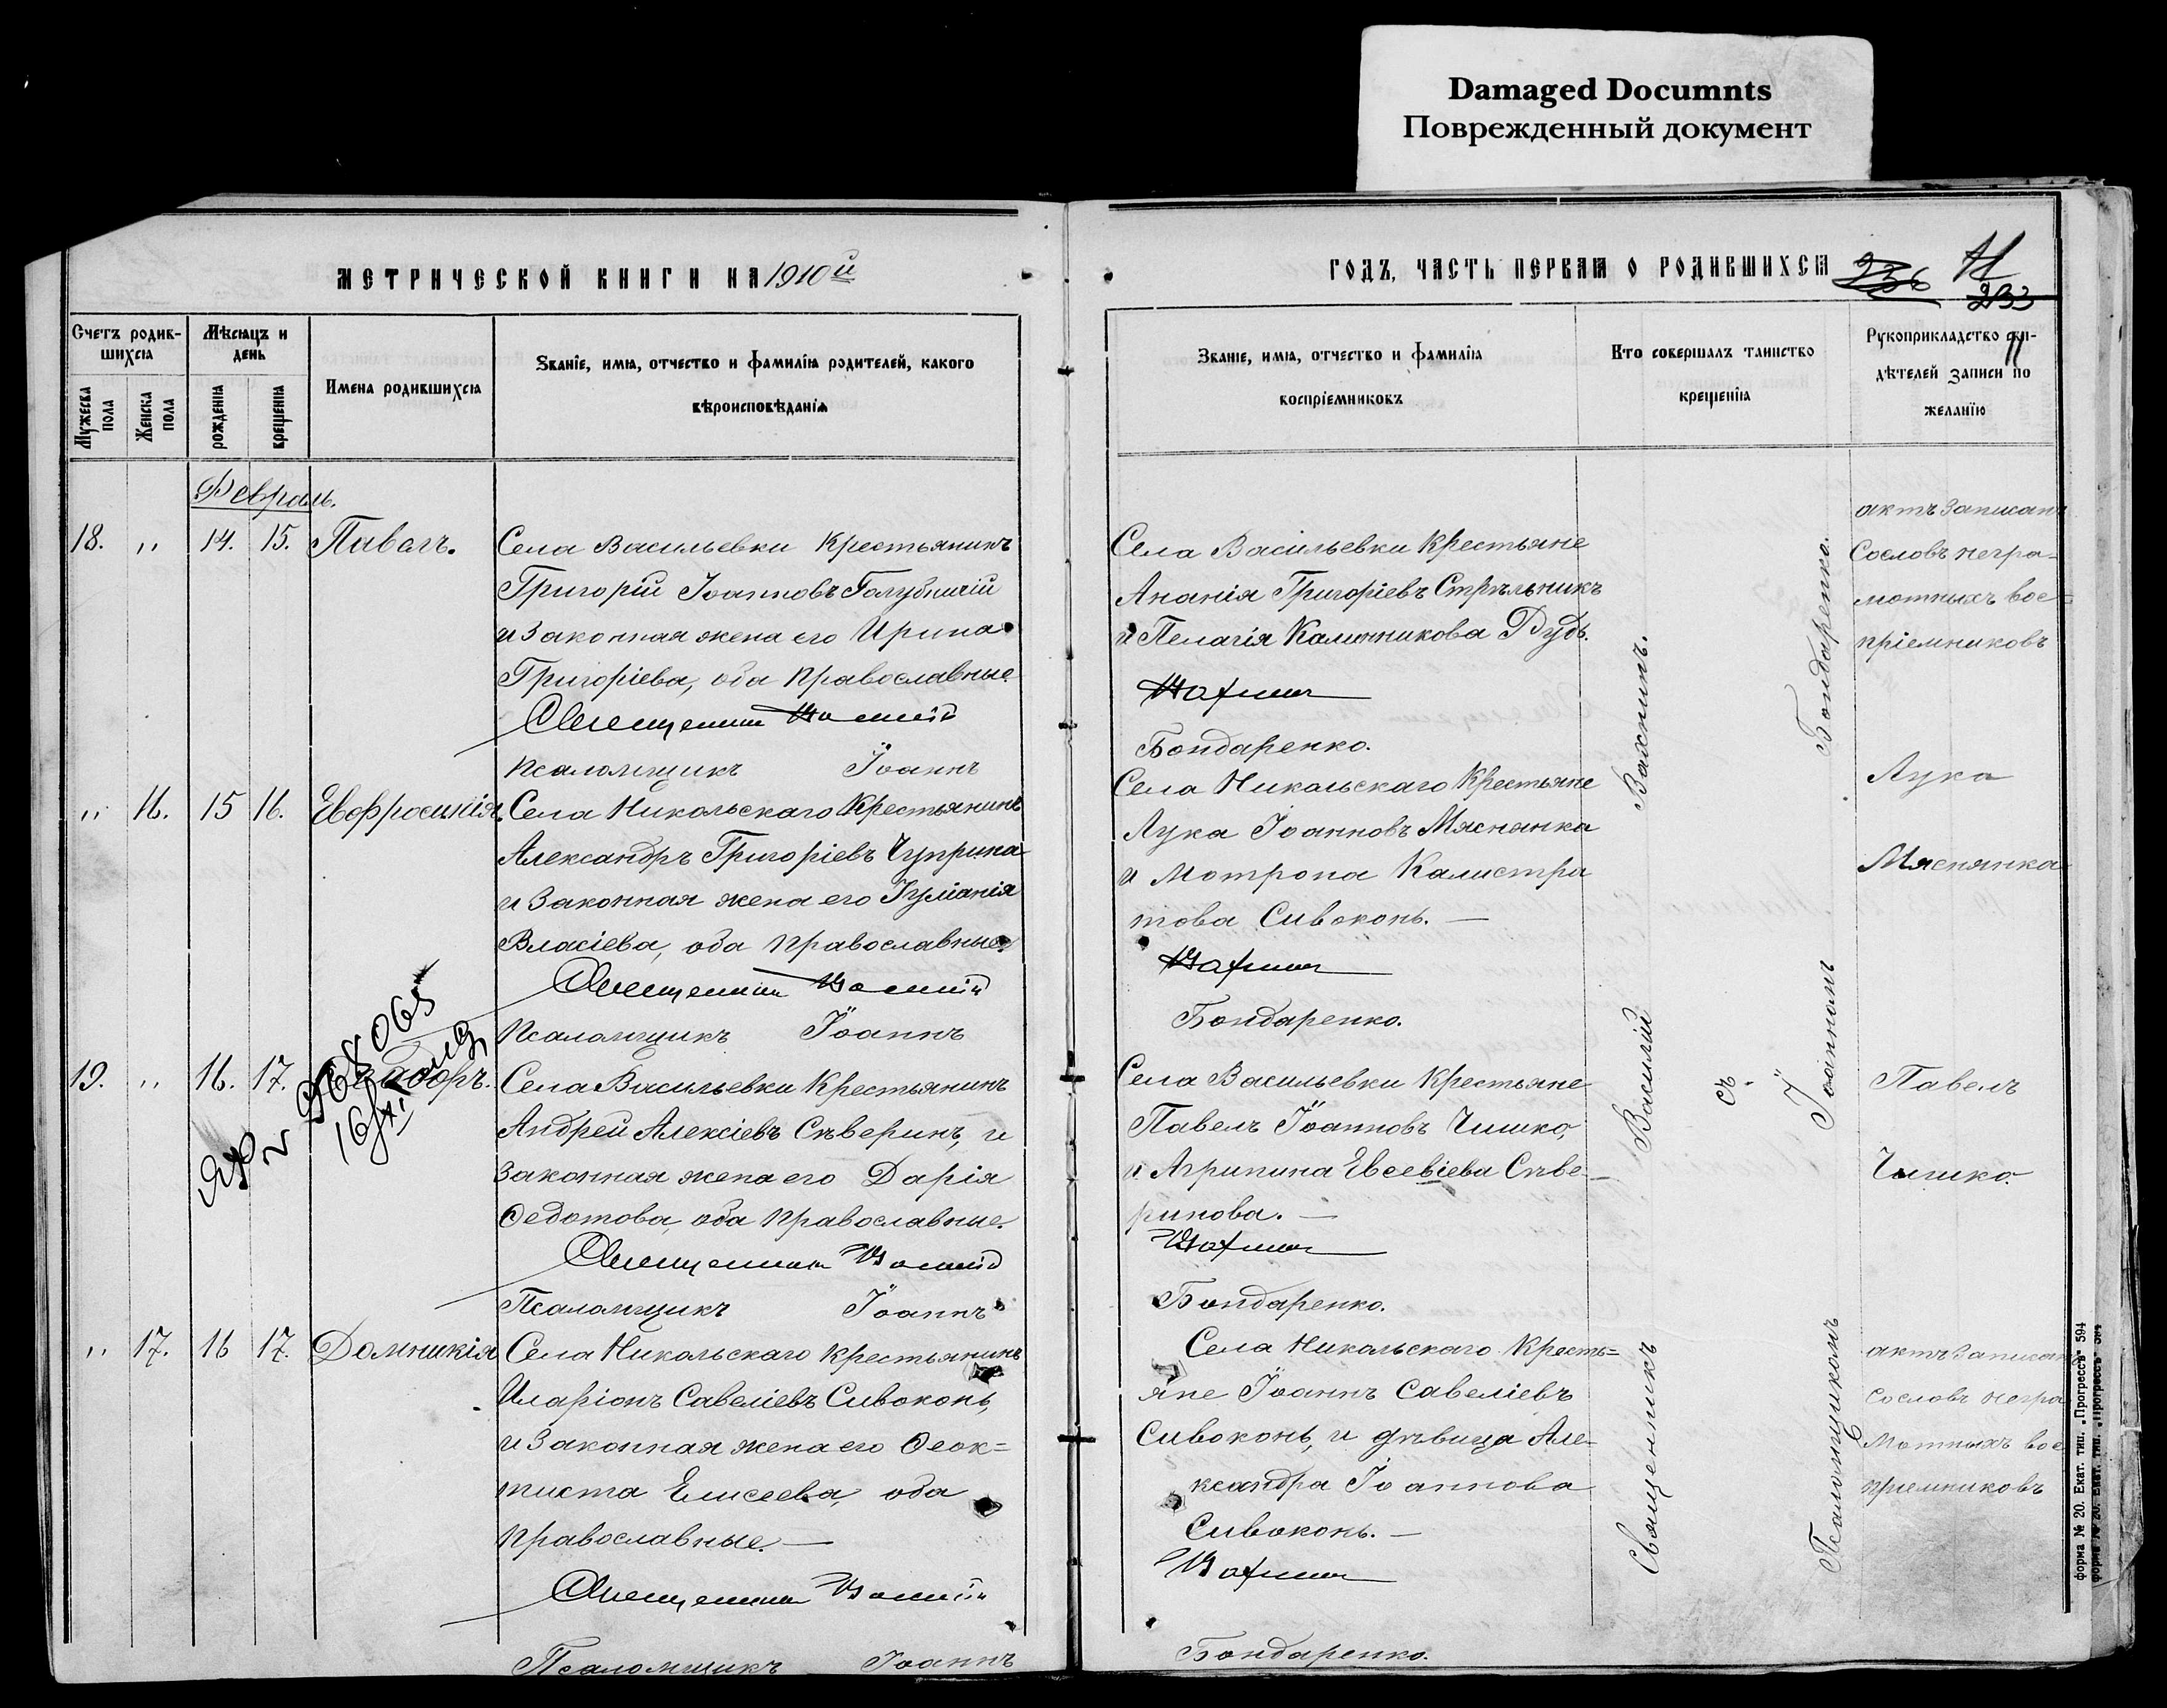 Damaged Documnts
Поврежденный документ
МЕТРИЧЕСКОЙ КНИГИ НА 1910й
ГОДЪ, ЧАСТЬ ПЕРВАЯ О РОДИВШИХСЯ
236
11
233
Счетъ родив-
шихся
Мужеска
пола
Женска
пола
Мѣсяцъ и
день
рожденія
крещенія
Имена родившихся
Званіе, имя, отчество и фамилія родителей, какого
вѣроисповѣданія
Званіе, имя, отчество и фамилія
воспріемниковъ
Кто совершалъ таинство
крещенія
Рукоприкладство сви-
дѣтелей записи по
желанію
Февраль.
18. " 14. 15. Павелъ.
Села Васильевки крестьянинъ
Григорій Іоанновъ Голубничій
и законная жена его Ирина
Григоріева, оба православные
Священникъ Василій
Псаломщикъ Іоаннъ
Села Васильевки крестьяне
Ананія Григоріевъ Стрѣльникъ
и Пелагія Калинникова Дубъ.
Вахнинъ
Бондаренко.
актъ записанъ
со словъ негра-
мотныхъ вос=
пріемниковъ
" 16. 15 16. Евфросинія.
Села Никольскаго крестьянинъ
Александръ Григоріевъ Чуприна
и законная жена его Іуліанія
Власіева, оба православные
Священникъ Василій
Псаломщикъ Іоаннъ
Села Никольскаго крестьяне
Лука Іоанновъ Мяснянка
и Мотрона Калистра
това Сивоконь. —
Вахнинъ
Бондаренко.
Лука
Мяснянка
19. " 16. 17. Ѳеодоръ.
Села Васильевки крестьянинъ
Андрей Алексіевъ Сѣверинъ, и
законная жена его Дарія
Ѳедотова, оба православные.
Священникъ Василій
Псаломщикъ Іоаннъ
Села Васильевки крестьяне
Павелъ Іоанновъ Чишко,
и Агрипина Евсевіева Сѣве-
ринова. —
Вахнинъ
Бондаренко.
Павелъ
Чишко.
" 17. 16 17. Домникія
Села Никольскаго крестьянинъ
Иларіонъ Савеліевъ Сивоконь,
и законная жена его Ѳеок=
тиста Елисеева, оба
православные. —
Священникъ Василій
Псаломщикъ Іоаннъ
Села Никольскаго кресть=
яне Іоаннъ Савеліевъ
Сивоконь, и дѣвица Але-
ксандра Іоаннова
Сивоконь. —
Вахнинъ
Бондаренко.
актъ записанъ
со словъ негра
мотныхъ вос
приемниковъ
Священникъ Василій Вахнинъ.
съ
Псаломщикомъ Іоанномъ Бондаренко.
форма № 20. Екат. тип. „Прогрессъ" 594